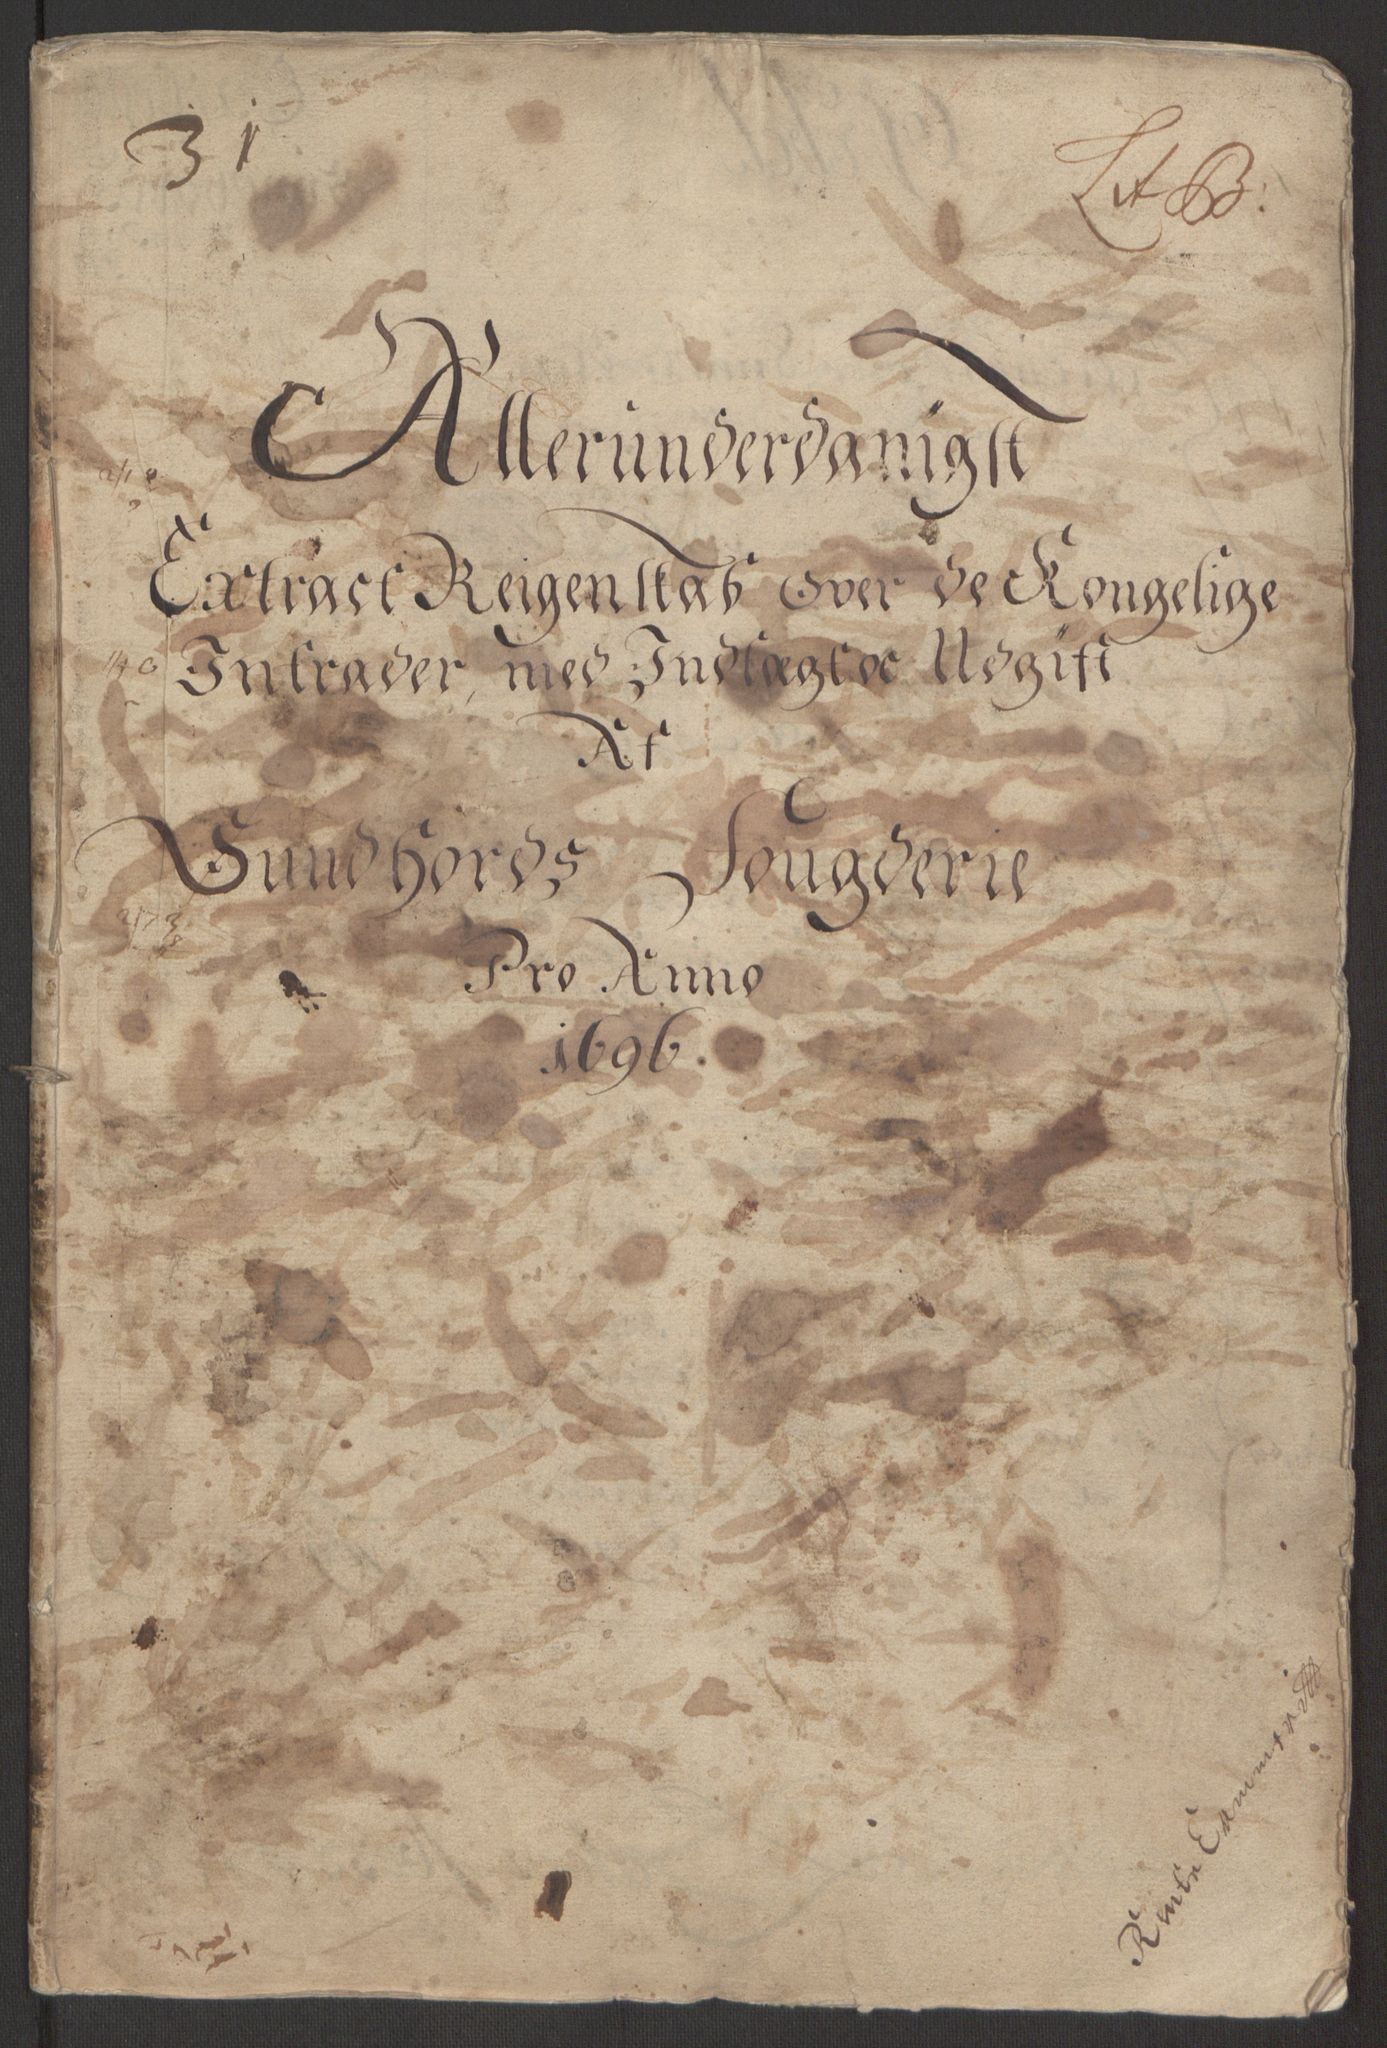 31
Lit B:
Alleründerdanigst
Extract Reigenskab over de Kongelige
Intrader, med Indtægt oc Udgift
Af
Sundhords Fougderie
Pro Anno
1696.
Rente Cammerit